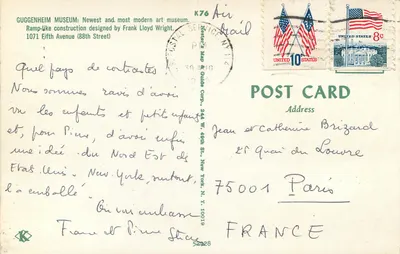 GUGGENHEIM MUSEUM: Newest and most modern art museum.
Ramp-like construction designed by Frank Lloyd Wright.
1071 Fifth Avenue (88th Street)
Quel pays de contrastes!
Nous sommes ravis d'avoir
vu les enfants et petits enfants
et, pour Pierre, d'avoir enfin
une idée du Nord Est des
Etats Unis. New York, surtout,
l'a emballé.
On vous embrasse
France et Pierre
K76
Air
Mail
UNITED STATES
10
UNITED STATES
8¢
POST CARD
Address
Jean et Catherine Brizard
25 Quai du Louvre
75001 Paris
FRANCE
K